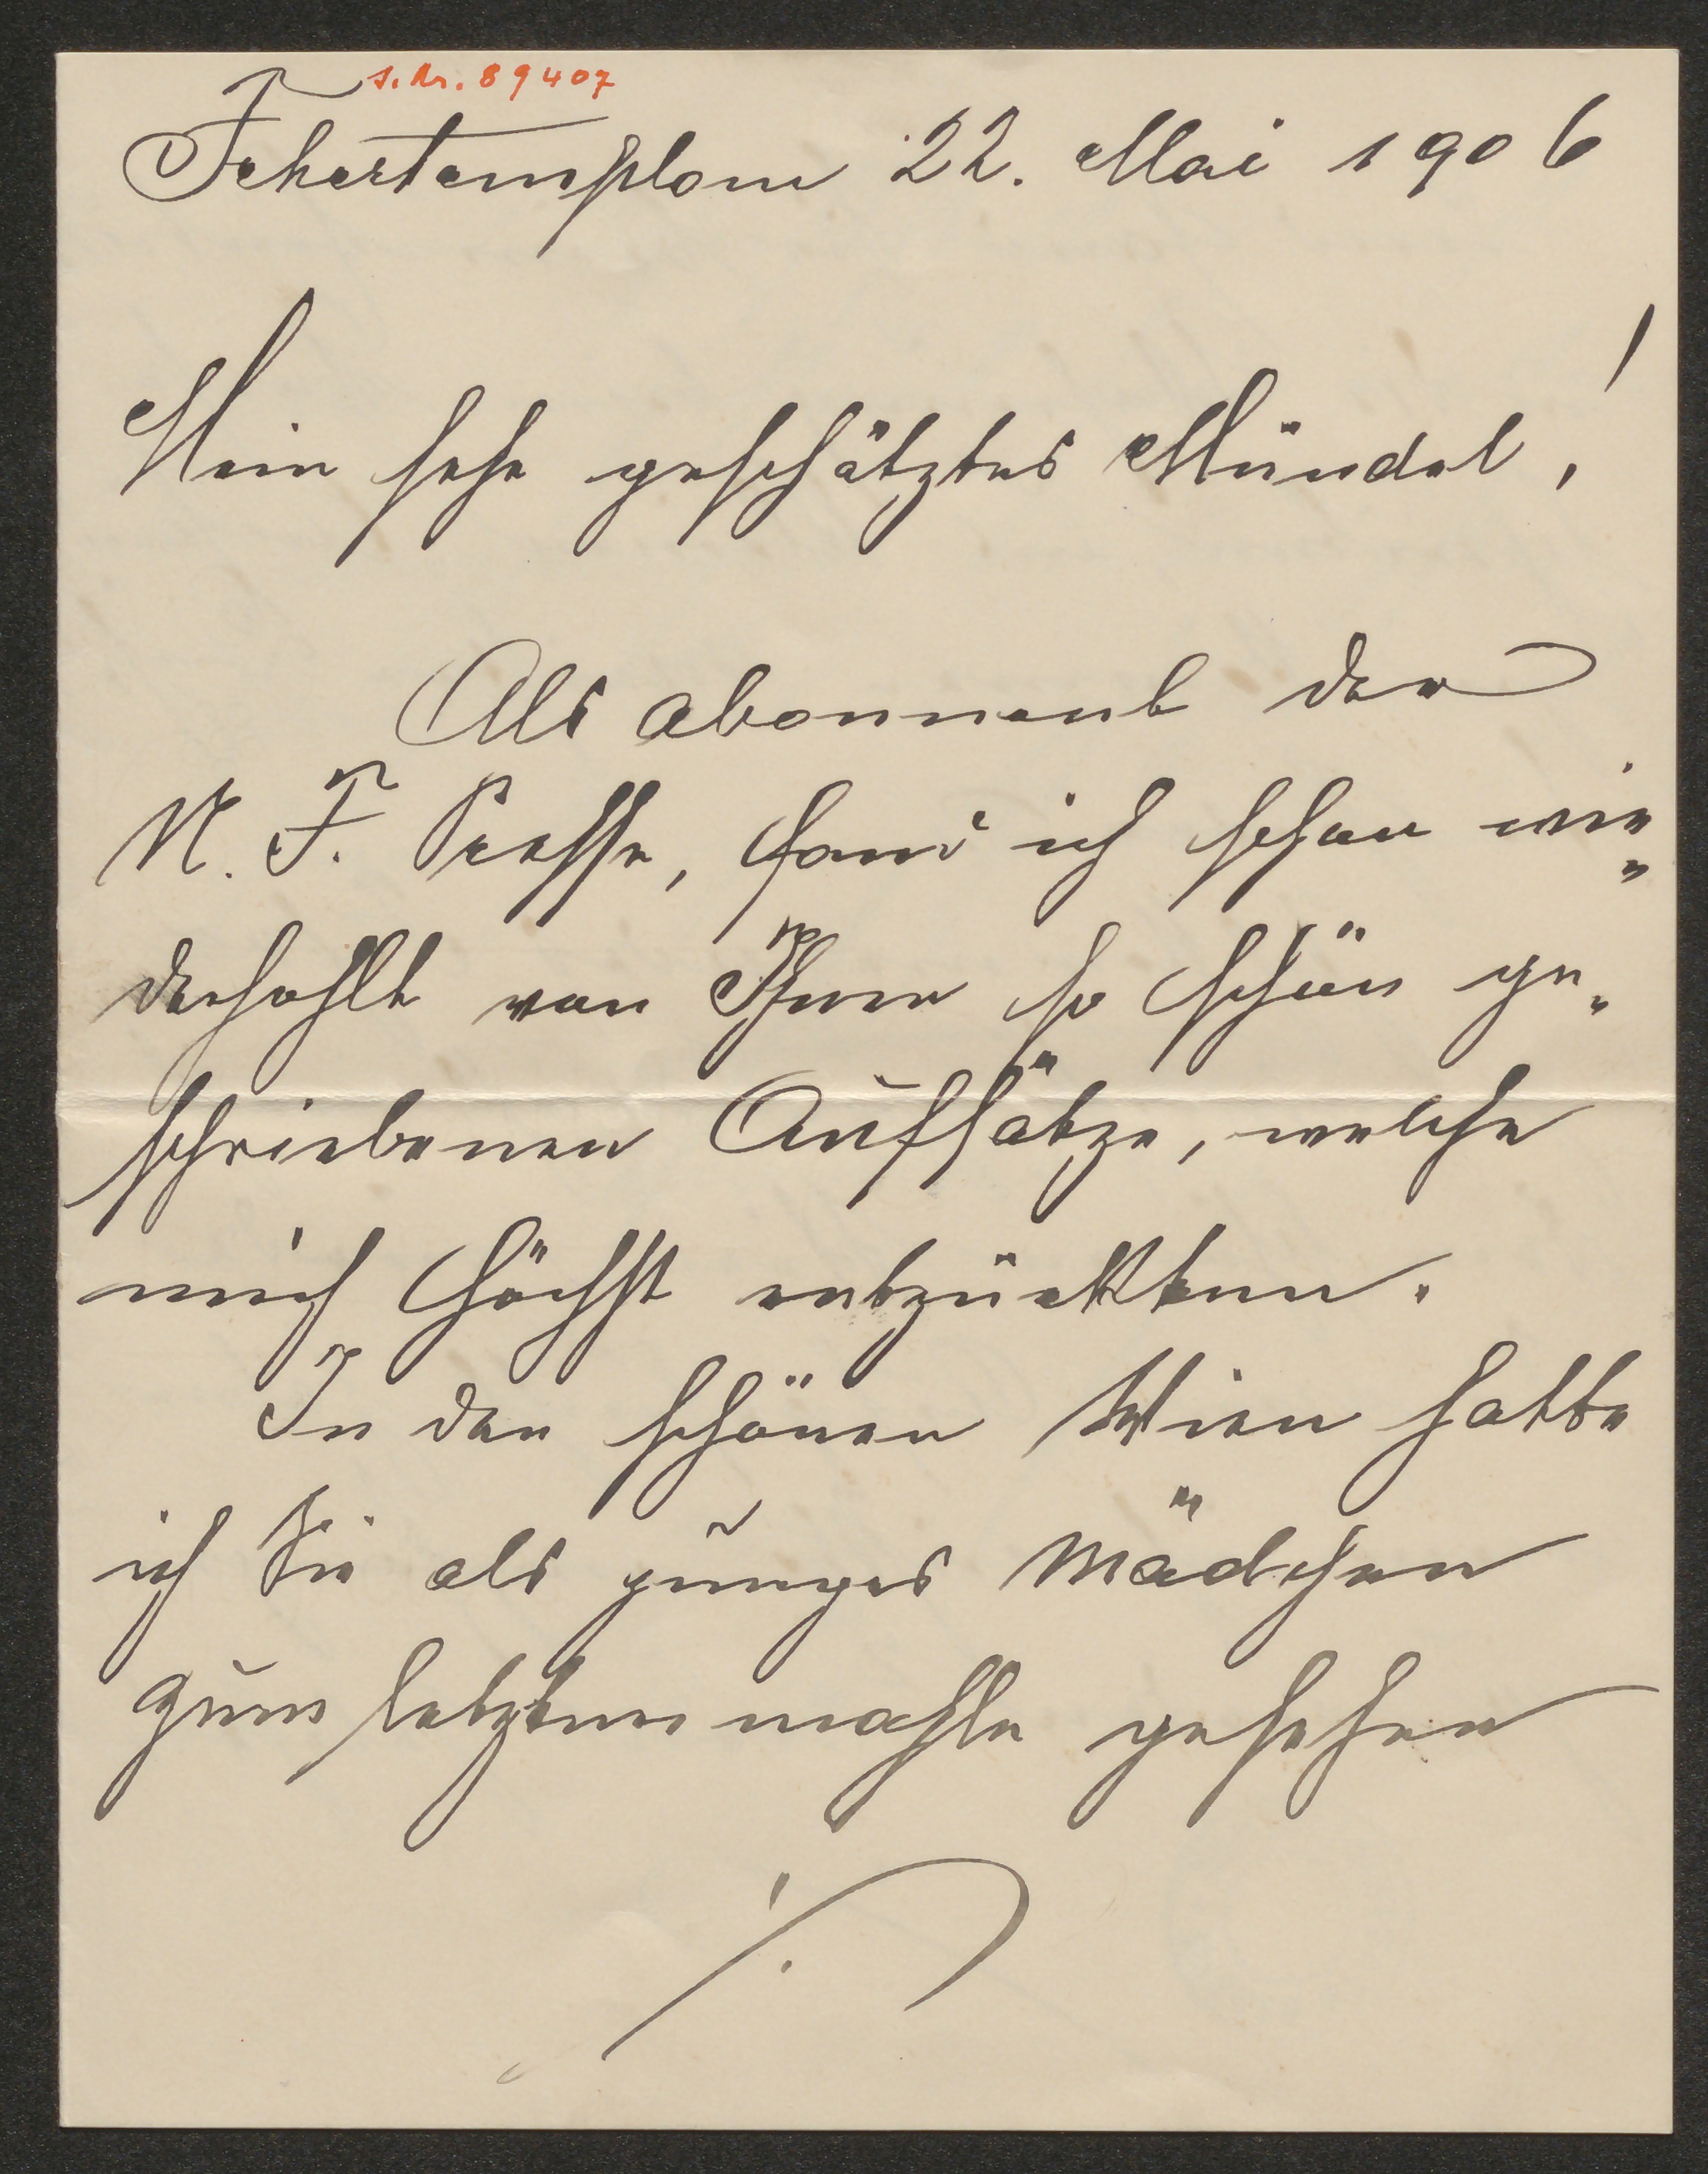 J. Nr. 89407
Fehertemplom 22. Mai 1906
Mein sehr geschätztes Mündel!
Als Abonnent der
N. F. Presse, fand ich schon wie„
derhohlt von Ihnen so schön ge„
schriebenen Aufsätze, welche
mich höchst entzückten.
In den schönen Wien hatte
ich Sie als junges Mädchen
zum letztenmahle gesehen